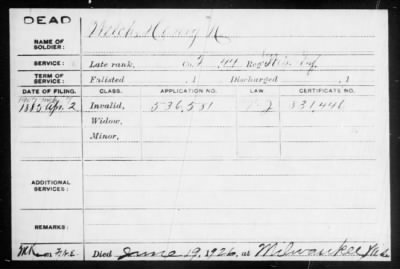 DEAD
NAME OF SOLDIER: Welch, Henry N
SERVICE: Late rank, Co. 44 Reg't Wis. Inf
TERM OF SERVICE: Enlisted , 1 Discharged , 1
DATE OF FILING. CLASS. APPLICATION NO. LAW. CERTIFICATE NO.
1885 Apr. 2 Invalid, 536,581 831,446
Widow,
Minor,
ADDITIONAL SERVICES:
REMARKS:
Died June 19, 1926, at Milwaukee Wis